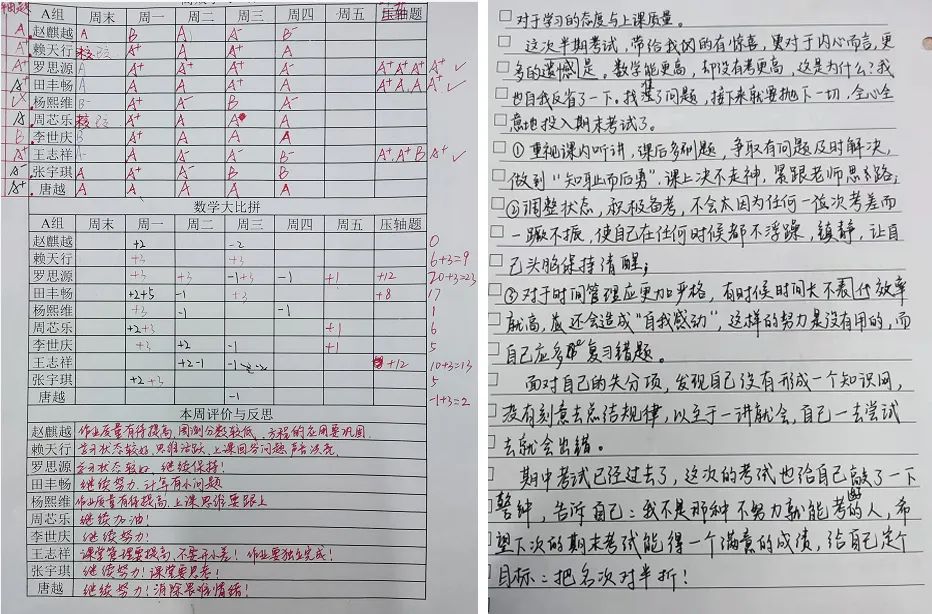 A组 周末 周一 周二 周三 周四 周五 压轴题
A 赵麒越 A B A A- B-
A+ 赖天行 A+ A A- A
A+ 罗思源 A A+ A+ A+ A- A+ A+ A+ A+ ✓
A+ 田丰畅 A A+ A A+ A A+ A A A+ ✓
杨熙维 B- A+ A- B A-
A 周芯乐 A+ A A A
B 李世庆 B A+ A A A
A+ 王志祥 A A- A- B- A+ A+ B A+ ✓
A- 张宇琪 A A- B B
A+ 唐越 A A A A A
数学大比拼
A组 周末 周一 周二 周三 周四 周五 压轴题
赵麒越 +2 -2 0
赖天行 +3 +3 6+3=9
罗思源 +3 +3 -1+3 -1 +1 +12 20+3=23
田丰畅 +2+5 -1 +3 +8 17
杨熙维 +3 -1 -1 1
周芯乐 +2+3 +1 6
李世庆 +3 +2 -1 +1 5
王志祥 +2-1 -1 +12 10+3=13
张宇琪 +2+3 5
唐越 -1 -1+3=2
本周评价与反思
赵麒越 作业质量有待提高,周测分数较低,方程的应用要巩固.
赖天行 学习状态较好,思维活跃,上课回答问题声音洪亮.
罗思源 学习状态较好,继续保持!
田丰畅 继续努力.计算有小问题
杨熙维 作业质量有待提高,上课思维要跟上
周芯乐 继续加油!
李世庆 继续努力!
王志祥 课堂管理要提高,不要开小差!作业要独立完成!
张宇琪 继续努力!课堂要思考!
唐越 继续努力!消除畏难情绪!
对于学习的态度与上课质量。
这次半期考试,带给我们的有惊喜,更对于内心而言,更
多的遗憾是。数学能更高,却没有考更高,这是为什么?我
也自我反省了一下,找准了问题,接下来就要抛下一切,全心全
意地投入期末考试了。
①重视课内听讲,课后多刷题,争取有问题及时解决,
做到“知耻而后勇”.课上决不走神,紧跟老师思路;
②调整状态,积极备考,不会太因为任何一位次考差而
一蹶不振,使自己在任何时候都不浮躁,镇静,让自
己头脑保持清醒;
③对于时间管理应更加严格,有时候时间长不代效率
就高,还会造成“自我感动”,这样的努力是没有用的,而
自己应多复习错题。
面对自己的失分项,发现自己没有形成一个知识网,
没有刻意去总结规律,以至于一讲就会,自己一去尝试
去就会出错。
期中考试已经过去了,这次的考试也给自己敲了一下
警钟,告诉自己:我不是那种不努力就能考的人,希
望下次的期末考试能得一个满意的成绩,给自己定个
目标:把名次对半折!